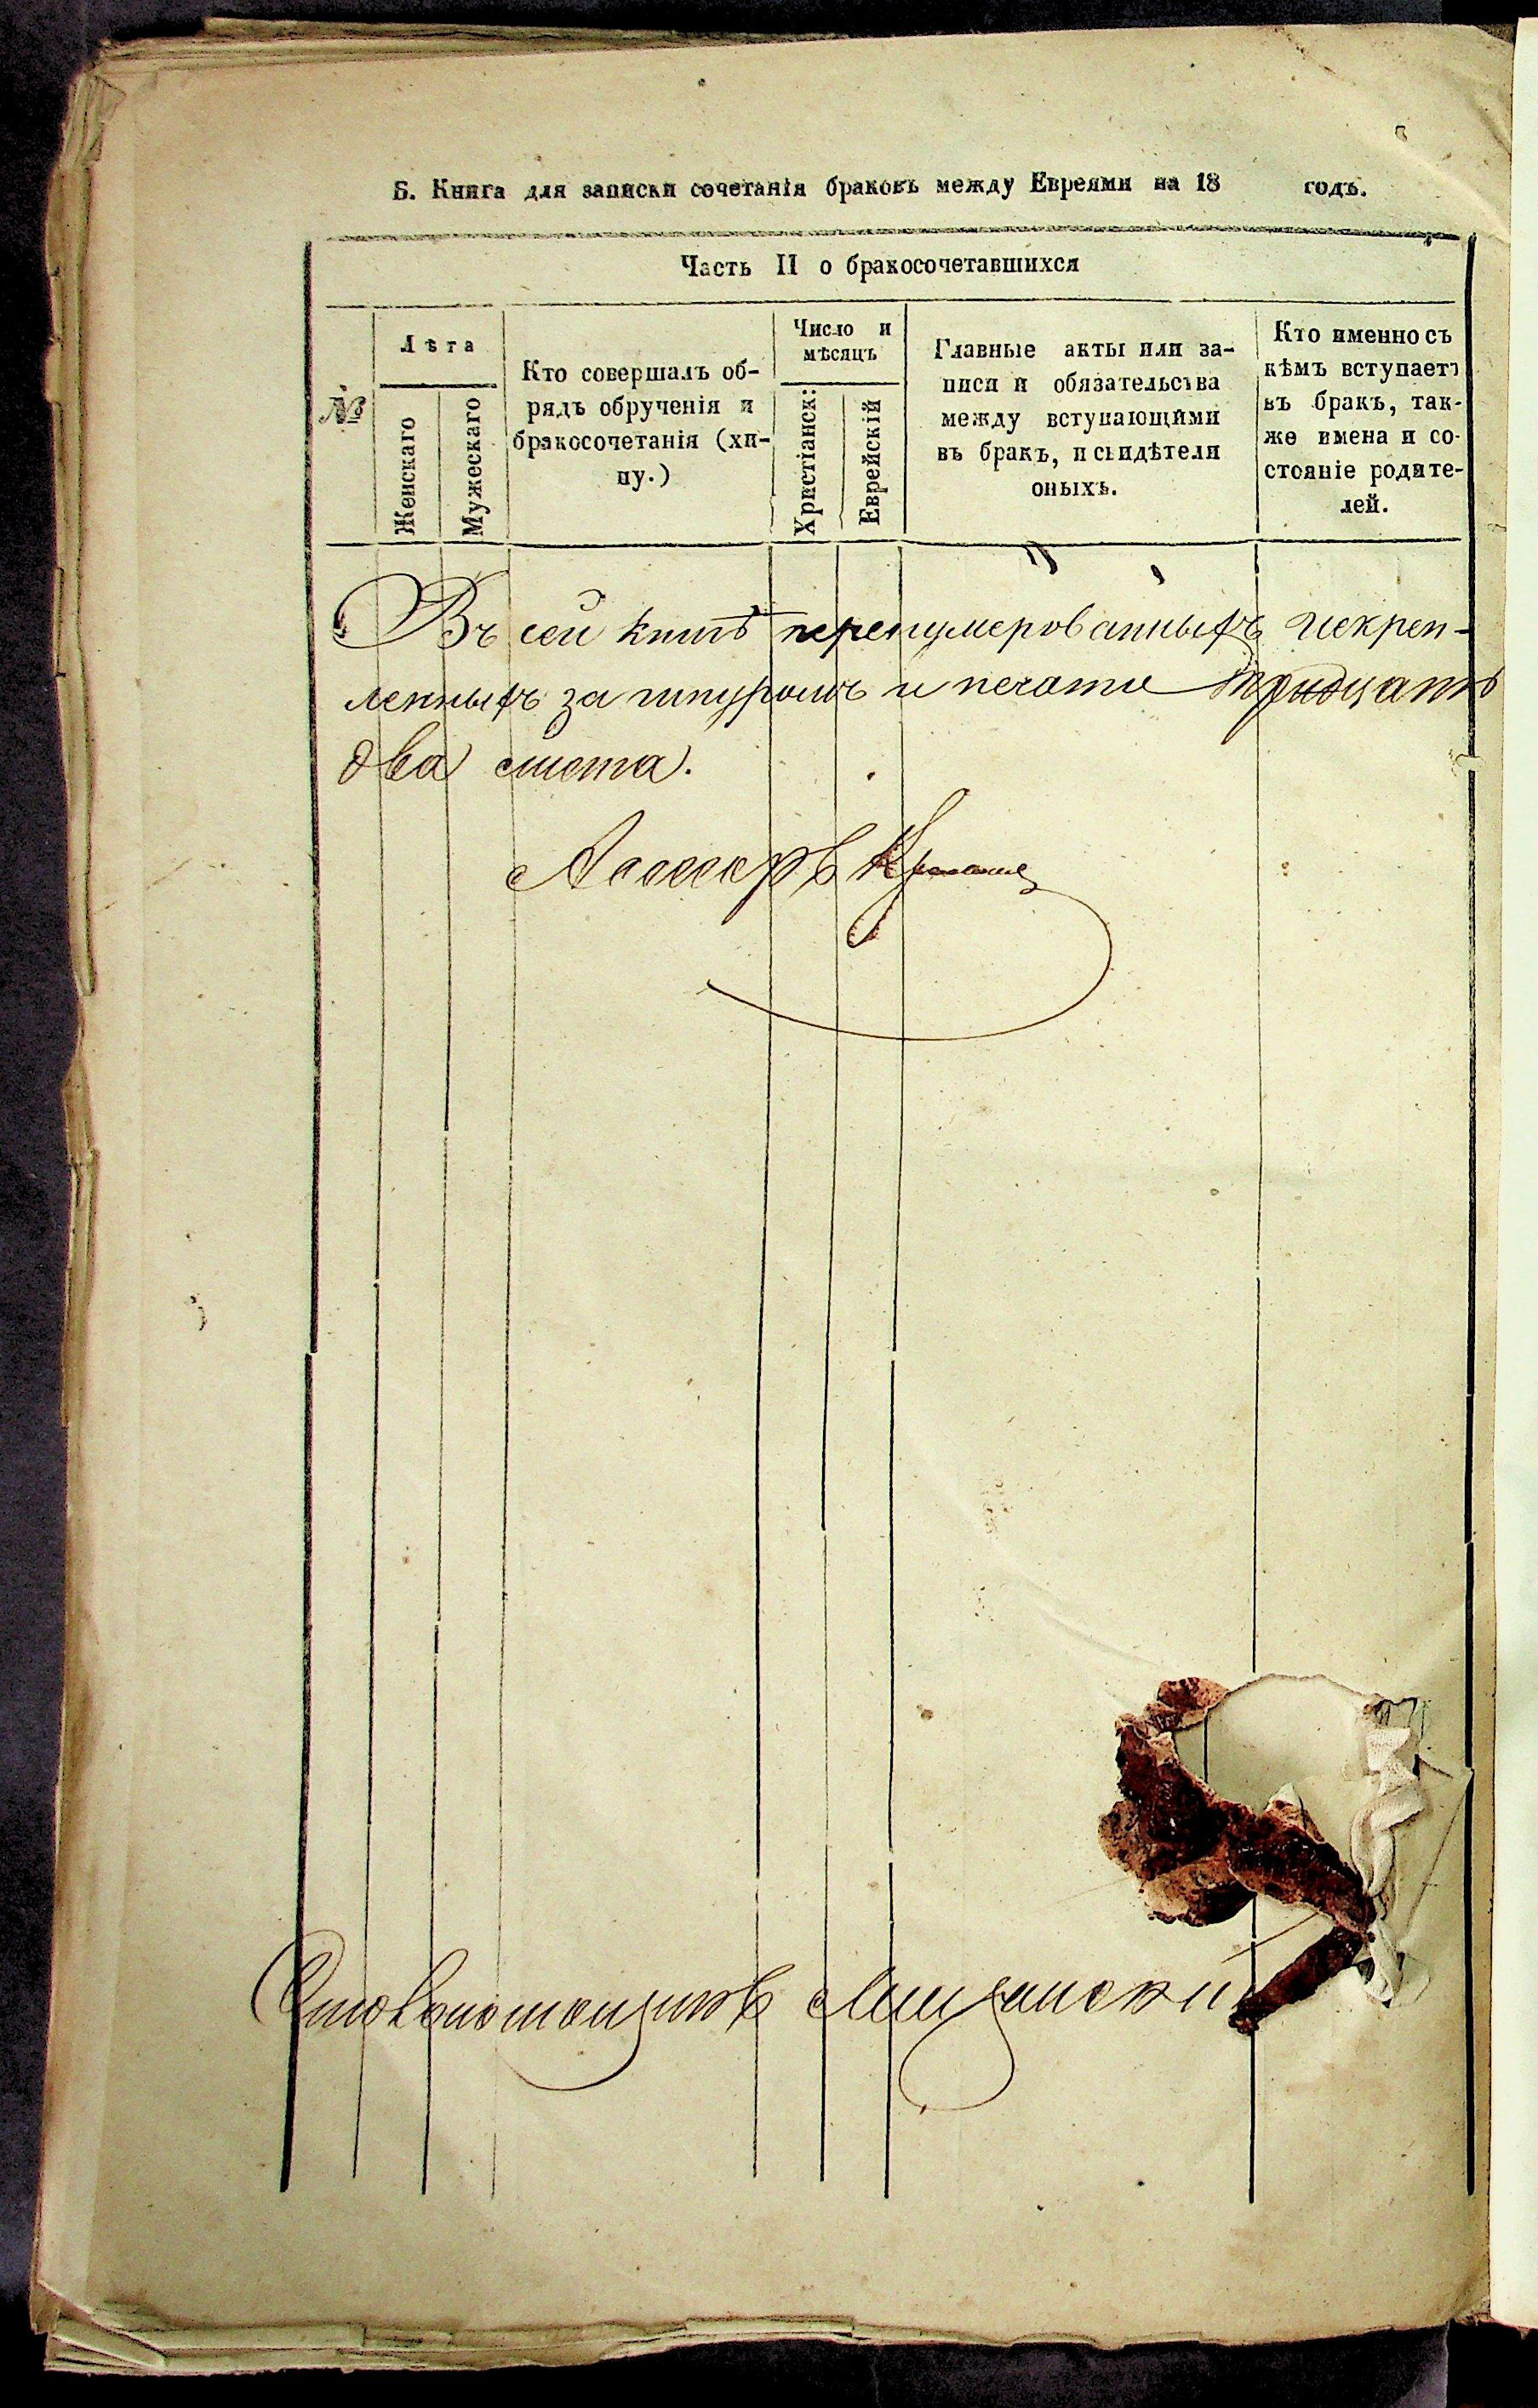 Б. Книга для записки сочетанія браковъ между Евреями на 18 годъ.
Часть II о бракосочетавшихся
№
Лѣта
Женскаго
Мужескаго
Кто совершалъ об-
рядъ обрученія и
бракосочетанія (хи-
пу.)
Число и
мѣсяцъ
Христіанск:
Еврейскій
Главные акты или за-
писи и обязательства
между вступающими
въ бракъ, и свидѣтели
оныхъ.
Кто именно съ
кѣмъ вступаетъ
въ бракъ, так-
же имена и со-
стояніе родите-
лей.
Въ сей книгѣ перенумерованныхъ и скреп-
ленныхъ за шнуромъ и печатью тридцать
два листа.
Ассесоръ
Столоначальникъ